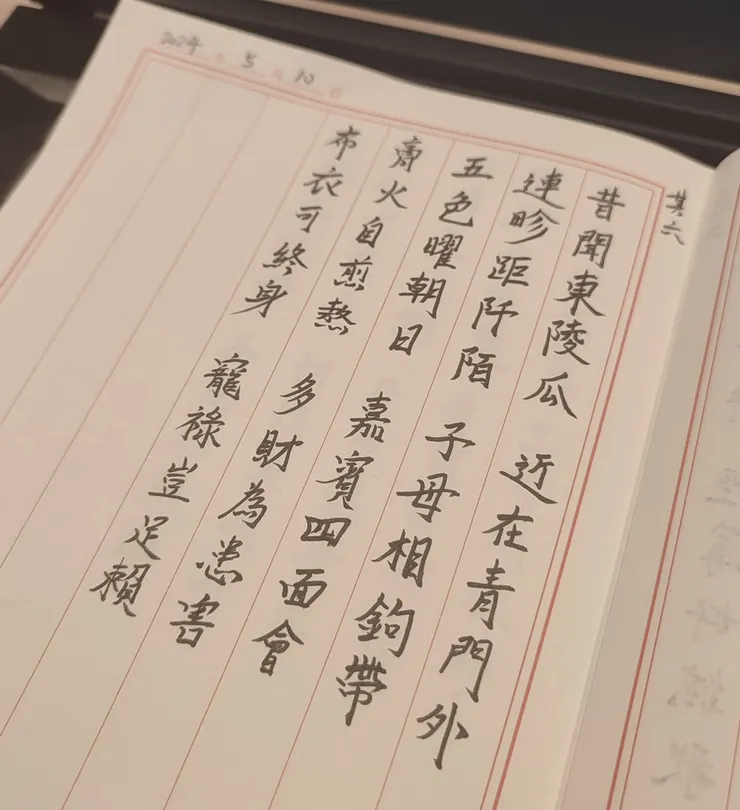 2024年 5 10
其六
昔聞東陵瓜 近在青門外
連畛距阡陌 子母相鉤帶
五色曜朝日 嘉賓四面會
膏火自煎熬 多財為患害
布衣可終身 寵祿豈足賴